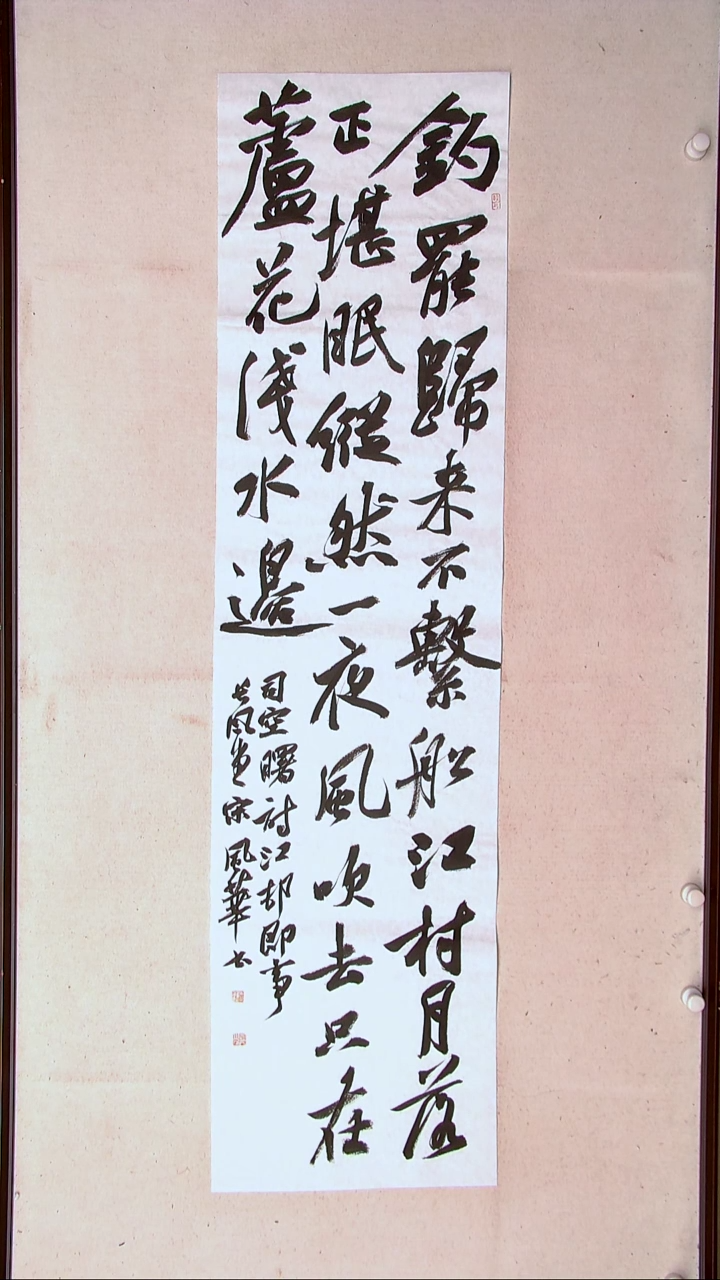 釣罷歸来不繫船江村月落
正堪眠縱然一夜風吹去只在
蘆花淺水邊
司空曙詩江邨即事
長風堂宗風華书